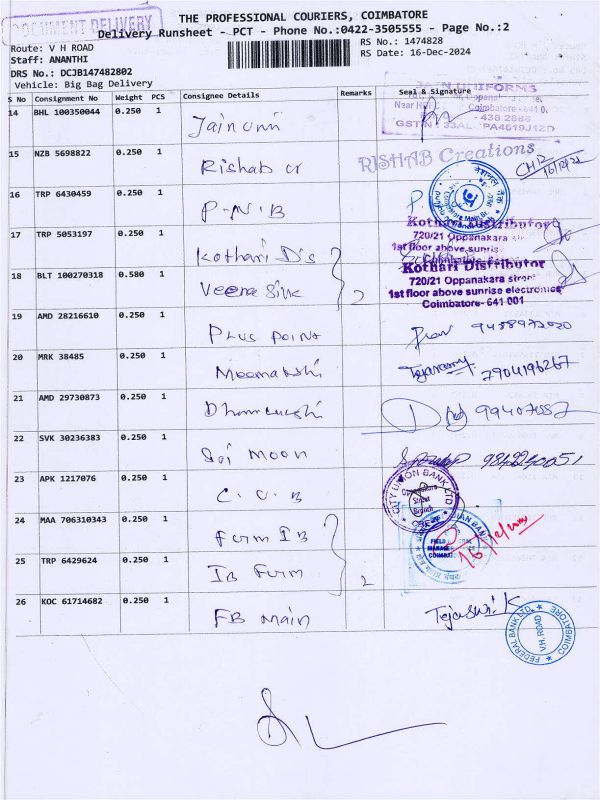 DOCUMENT DELIVERY
THE PROFESSIONAL COURIERS, COIMBATORE
Delivery Runsheet - PCT - Phone No.:0422-3505555 - Page No.:2
Route: V H ROAD
RS No.: 1474828
Staff: ANANTHI
RS Date: 16-Dec-2024
DRS No.: DCJB147482802
Vehicle: Big Bag Delivery
S No Consignment No Weight PCS Consignee Details Remarks Seal & Signature
14 BHL 100350044 0.250 1
UNIFORMS
Coimbatore - 641 0
- 438 2866
GSTN 33AL PA4619J1ZD
15 NZB 5698822 0.250 1 Rishab cr
RISHAB Creations
16 TRP 6430459 0.250 1 P.N.B
17 TRP 5053197 0.250 1 Kothari D's
Kothari Distributor
720/21 Oppanakara
1st floor above sunris
18 BLT 100270318 0.580 1 2
Kothari Distributor
720/21 Oppanakara street
1st floor above sunrise electronics
Coimbatore- 641 001
19 AMD 28216610 0.250 1 Plus Point
20 MRK 38485 0.250 1 Meenakshi 7904196267
21 AMD 29730873 0.250 1
22 SVK 30236383 0.250 1 Sai Moon
23 APK 1217076 0.250 1 C.U.B
CITY UNION BANK LTD
Street
Branch
24 MAA 706310343 0.250 1 Furm IB
25 TRP 6429624 0.250 1 IB Furm 2
26 KOC 61714682 0.250 1 FB main Tejaswi.K
FEDERAL BANK LTD.
V.H. ROAD
COIMBATORE